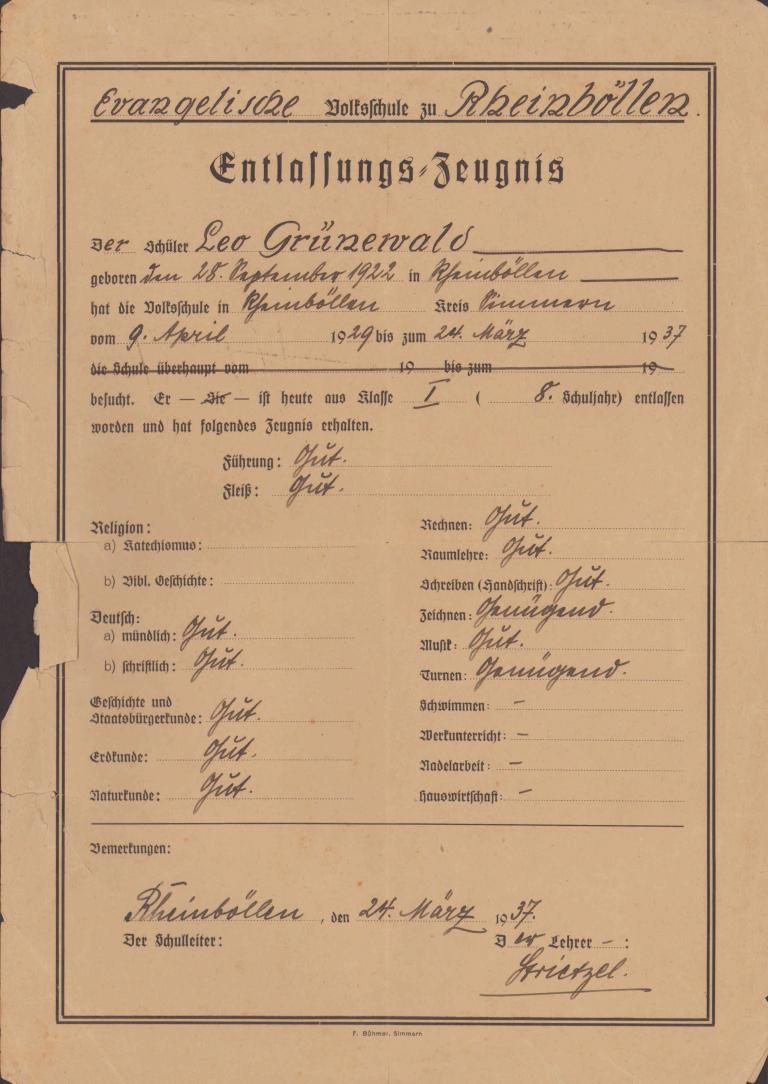 Evangelische Volksschule zu Rheinböllen.
Entlassungs-Zeugnis
Der Schüler Leo Grünewald
geboren den 28. September 1922 in Rheinböllen
hat die Volksschule in Rheinböllen Kreis Simmern
vom 9. April 1929 bis zum 24. März 1937
die Schule überhaupt vom 19 bis zum 19
besucht. Er — Sie — ist heute aus Klasse I ( 8. Schuljahr) entlassen
worden und hat folgendes Zeugnis erhalten.
Führung: Gut.
Fleiß: Gut.
Religion:
a) Katechismus:
b) Bibl. Geschichte:
Deutsch:
a) mündlich: Gut.
b) schriftlich: Gut.
Geschichte und
Staatsbürgerkunde: Gut.
Erdkunde: Gut.
Naturkunde: Gut.
Rechnen: Gut.
Raumlehre: Gut.
Schreiben (Handschrift): Gut.
Zeichnen: Genügend.
Musik: Gut.
Turnen: Genügend.
Schwimmen: –
Werkunterricht: –
Nadelarbeit: –
Hauswirtschaft: –
Bemerkungen:
Rheinböllen, den 24. März 1937.
Der Schulleiter: Der Lehrer – :
Strietzel.
F. Böhmer, Simmern